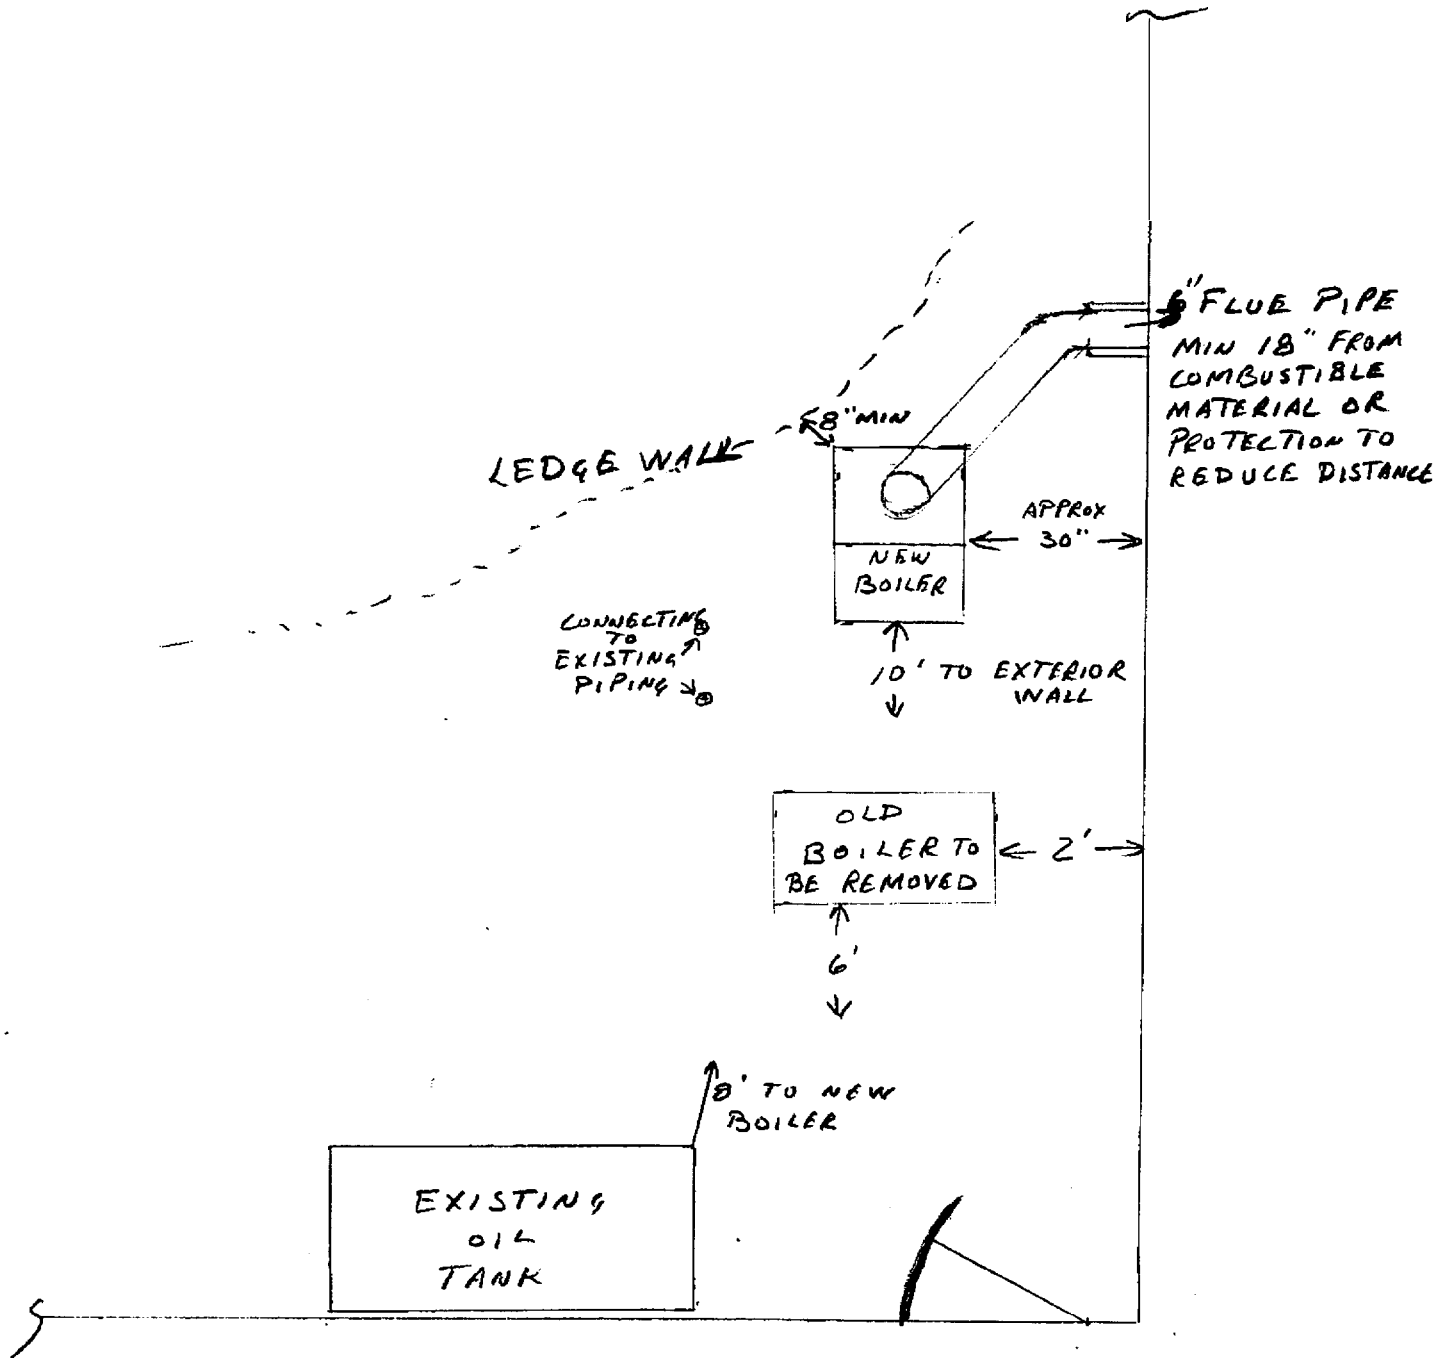 6" FLUE PIPE
MIN 18" FROM
COMBUSTIBLE
MATERIAL OR
PROTECTION TO
REDUCE DISTANCE
8" MIN
LEDGE WALL
APPROX
30"
NEW
BOILER
CONNECTING
TO
EXISTING
PIPING
10' TO EXTERIOR
WALL
OLD
BOILER TO
BE REMOVED
2'
6'
8' TO NEW
BOILER
EXISTING
OIL
TANK